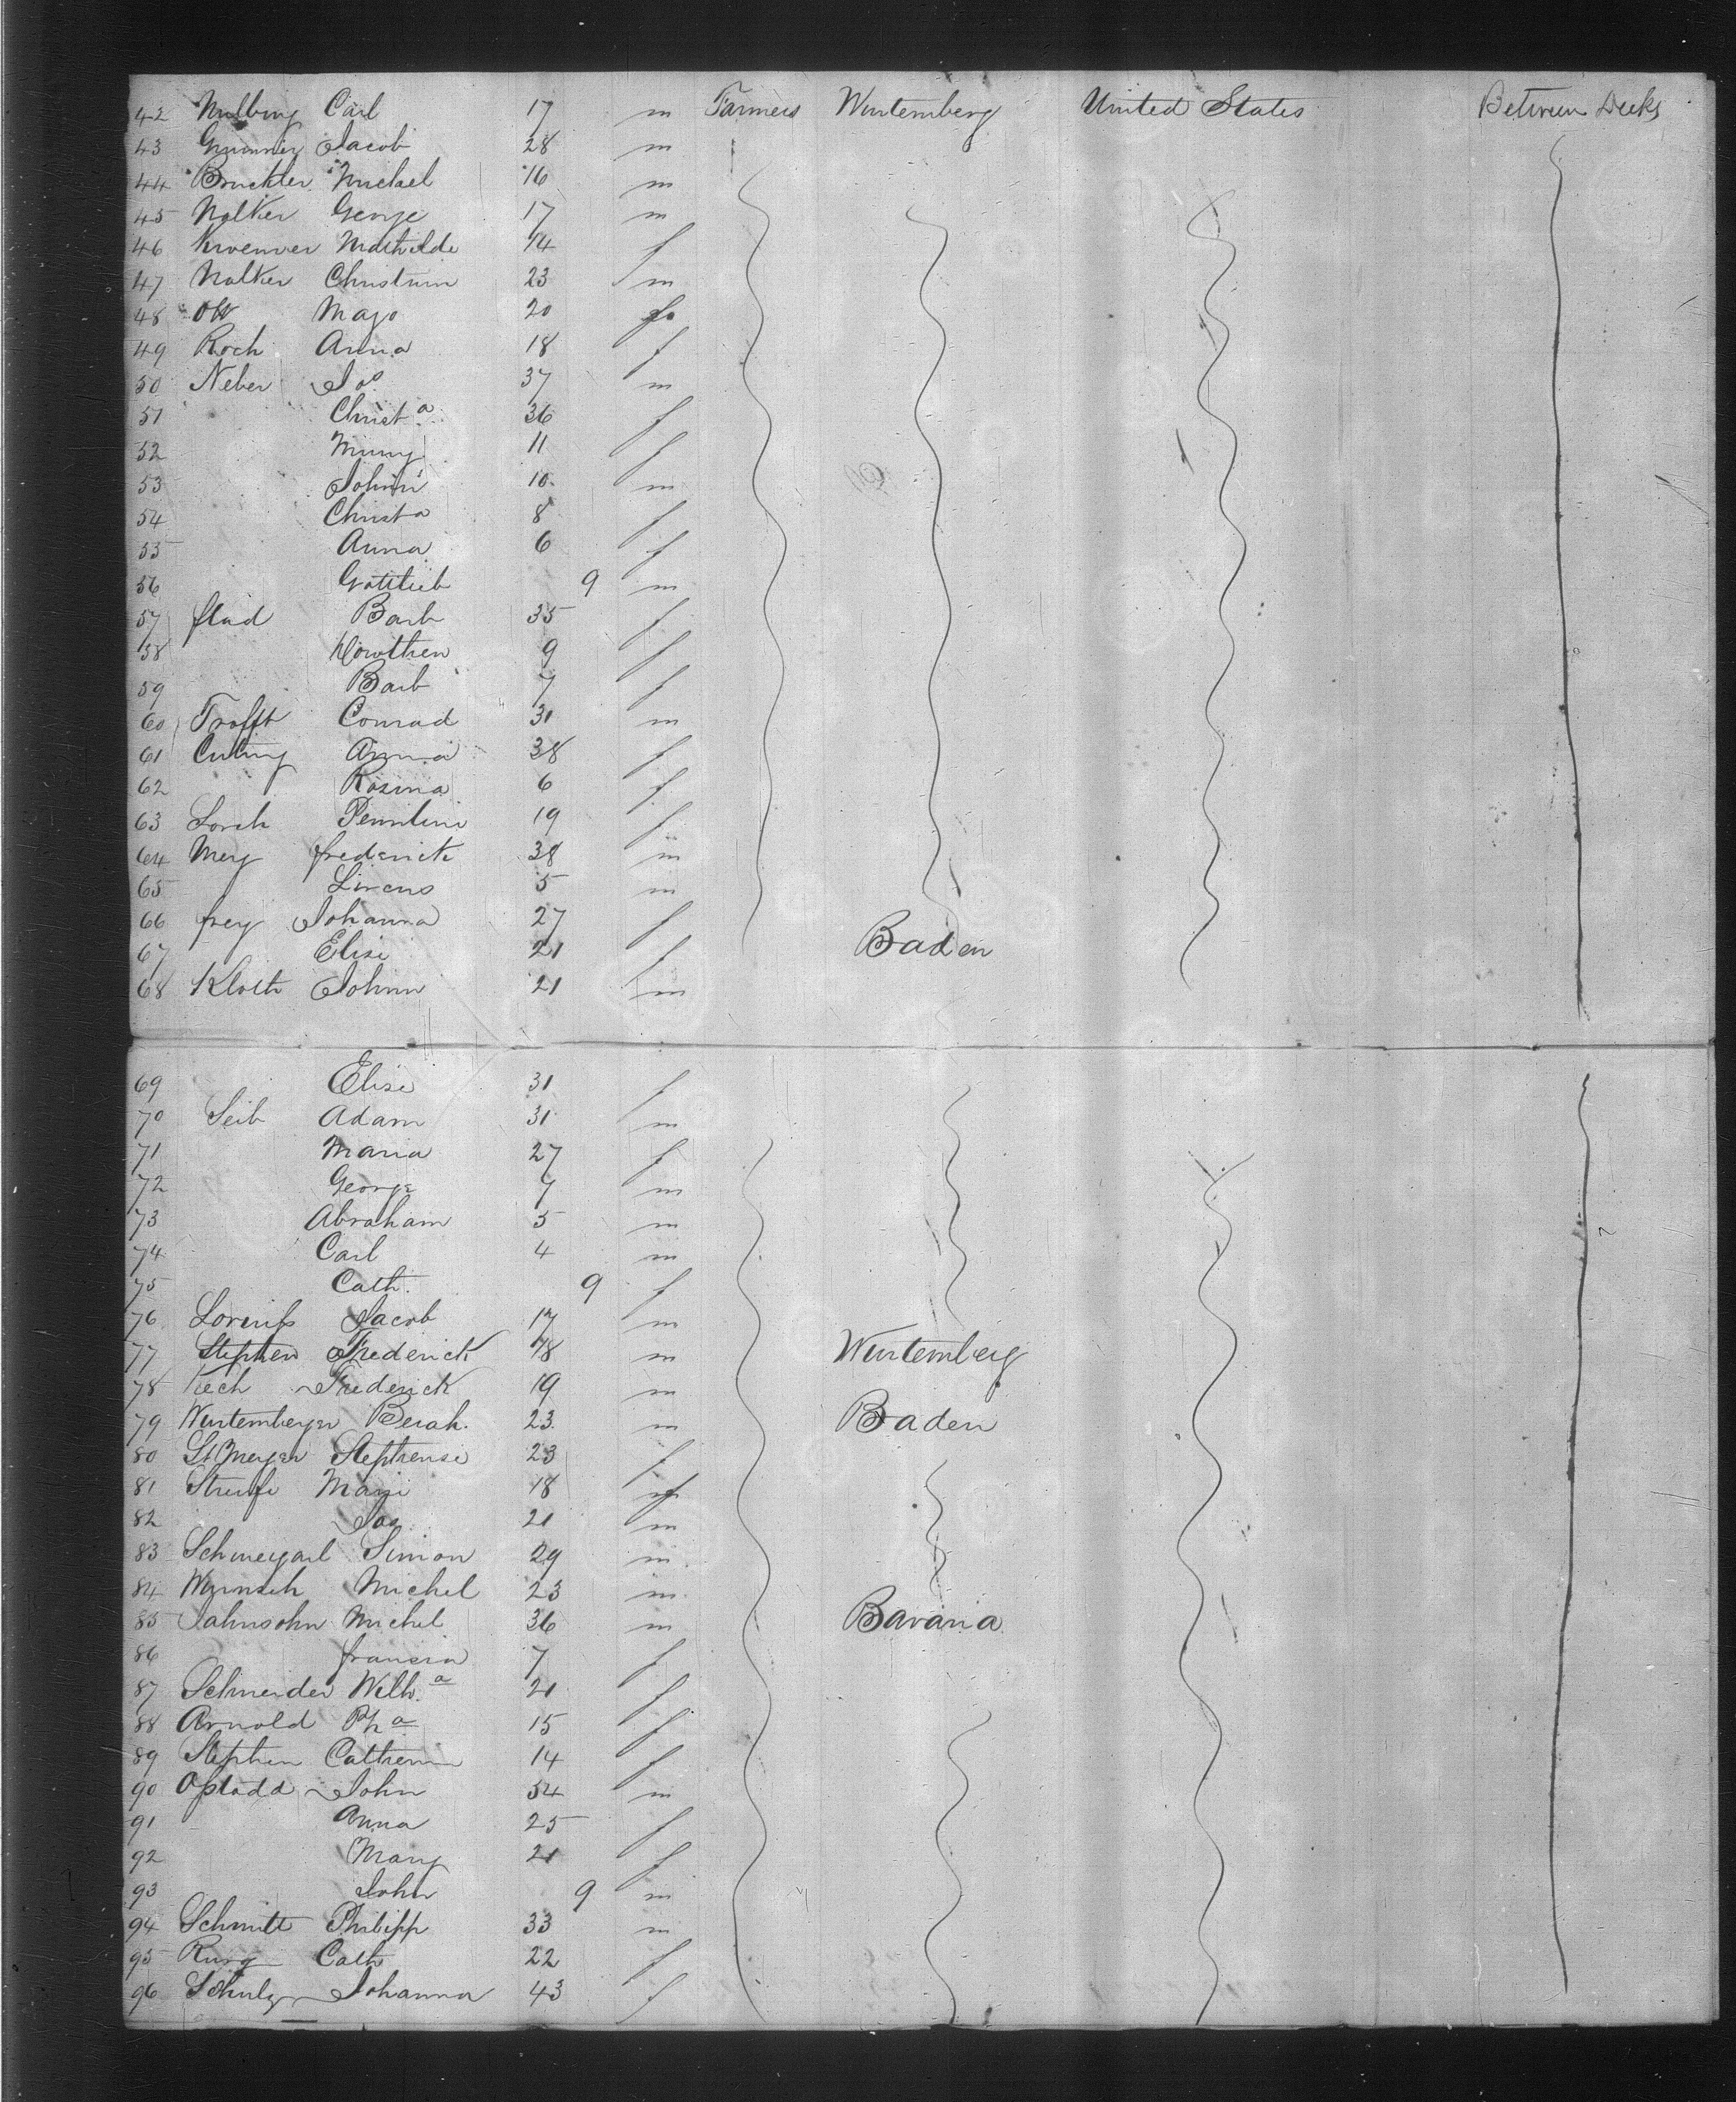 42 Carl 17 m Farmers Wurtemberg United States Between Decks
43 Jacob 28 m
44 Bruckler Michael 16 m
45 Walker George 17 m
46 Mathilde 14 f
47 Walker Christian 23 m
48 Ott 20 f
49 Koch Anna 18 f
50 Neber Jos 37 m
51 Christa 36 f
52 11 f
53 Johann 10 m
54 Christa 8 f
55 Anna 6 f
56 Gottlieb 9 m
57 flad Barb 35 f
58 9 f
59 Barb 7 f
60 Trofft Conrad 31 m
61 Anna 38 f
62 Rosina 6 f
63 Lorch 19 f
64 Mey frederick 38 m
65 5 m
66 frey Johanna 27 f
67 Elise 21 f Baden
68 Kloth Johann 21 m
69 Elise 31 f
70 Seib Adam 31 m
71 Maria 27 f
72 George 7 m
73 Abraham 5 m
74 Carl 4 m
75 Cath. 9 f
76 Jacob 17 m
77 Stephen Frederick 18 m Wurtemberg
78 Kech Frederick 19 m
79 Wurtemberger 23 m Baden
80 Stephense 23 f
81 18 f
82 Jos 21 m
83 Simon 29 m
84 Wunsch Michel 23 m
85 Jahnsohn Michel 36 m Bavaria
86 7 f
87 Schneider Wilh.a 21 f
88 Arnold Pha 15 f
89 Stephen 14 f
90 John 54 m
91 Anna 25 f
92 Mary 21 f
93 John 9 m
94 Schmitt Philipp 33 m
95 Cath 22 f
96 Schulz Johanna 43 f